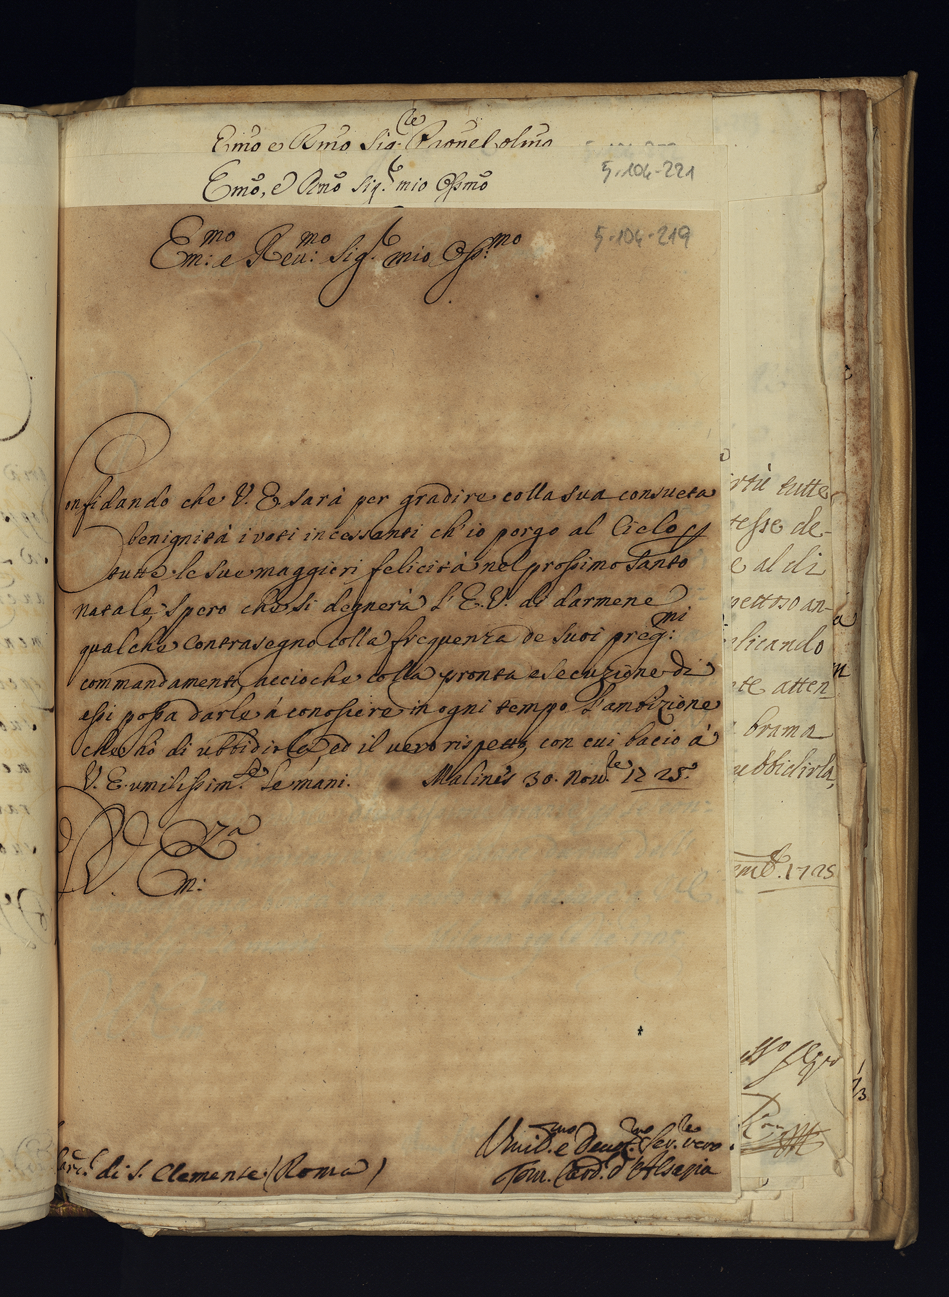 Emo e Rmo Sig.re Pron Colmo
Emo, e Rmo Sig.r mio Ossmo
5-104-221
5-104-219
Em:mo e Reu:mo Sig.r mio Oss:mo
Confidando che V. E. sarà per gradire colla sua consueta
benignità i voti incessanti ch'io porgo al Cielo
tutte le sue maggiori felicità nel prossimo Santo
natale, spero che si degnerà l'E.V. di darmene
qualche contrasegno colla frequenza de suoi preg:mi
commandamenti, accioche colla pronta esecuzione di
essi possa darle à conoscere in ogni tempo l'ambizione
che hò di ubbidirla, ed il vero rispetto, con cui bacio à
V. E. umilissim.te le mani. Malines 30. Nov.re 1725.
V. Em:za
di S. Clemente (Roma)
Umil.mo e Deuot.mo Ser.re vero
Tom. Card. d'Alsazia
rtù tutte
tesse de-
e al di
an-
plicando
te atten
brama
ubbidirla,
emb. 1725